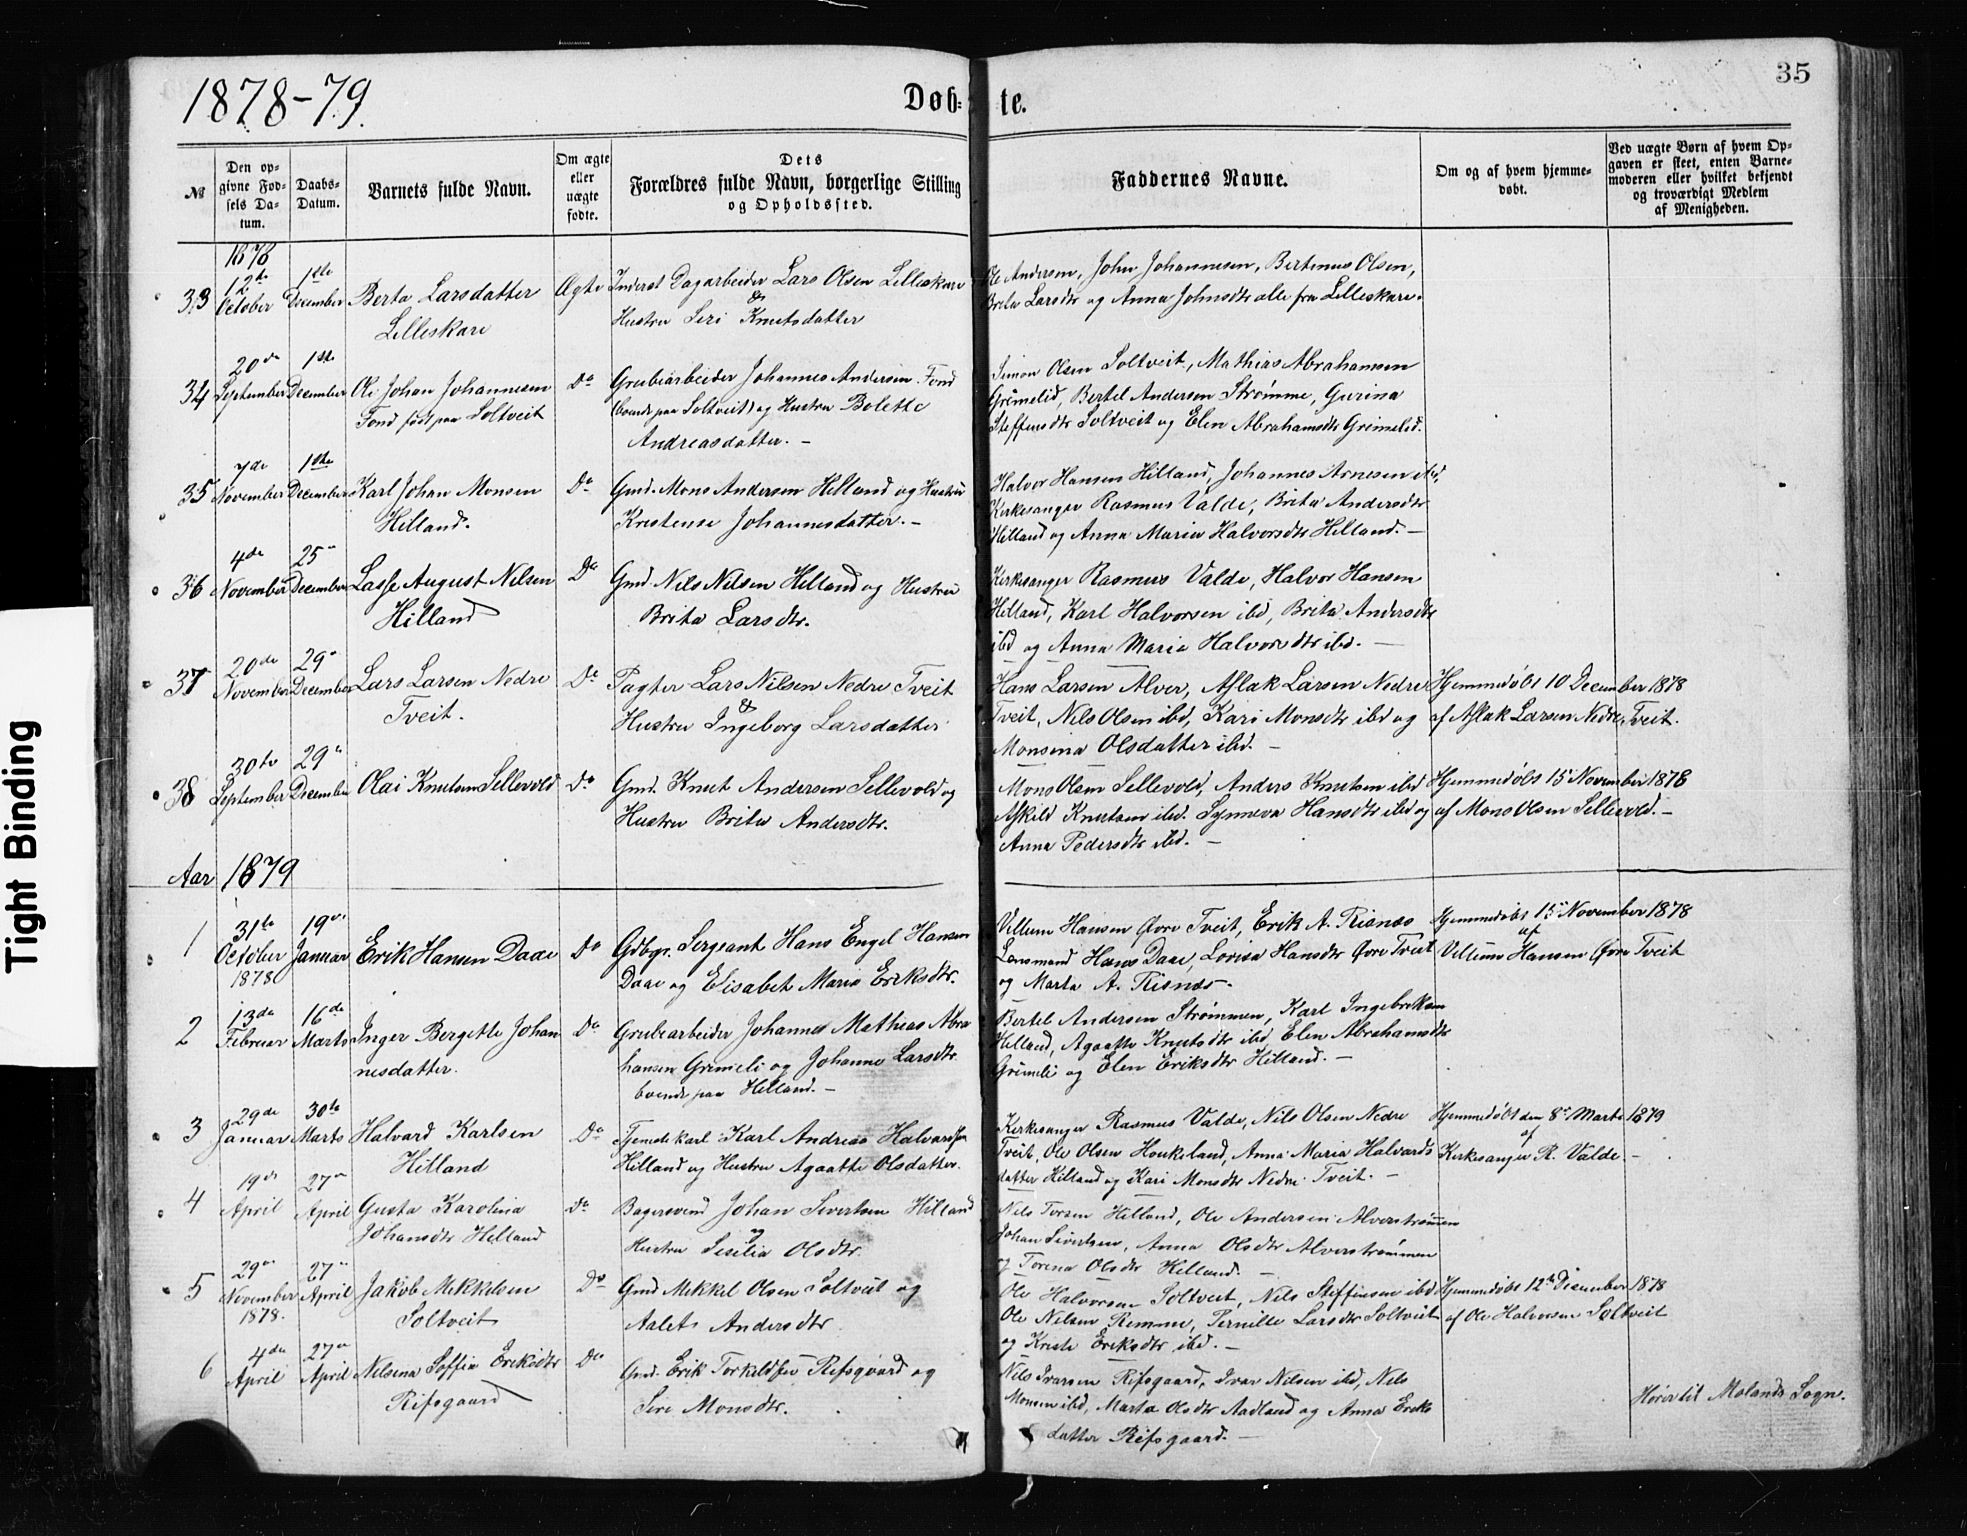 1878-79.
Døb-te.
35
№
Den opgivne Fødsels Datum.
Daabs-Datum.
Barnets fulde Navn.
Om ægte eller uægte fødte.
Dets Forældres fulde Navn, borgerlige Stilling og Opholdssted.
Faddernes Navne.
Om og af hvem hjemmedøbt.
Ved uægte Børn af hvem Opgaven er skeet, enten Barnemoderen eller hvilket bekjendt og troværdigt Medlem af Menigheden.
1878
33
12te October
1ste December
Berta Larsdatter
Lilleskare
Ægte
Inderst Dagarbeider Lars Olsen Lilleskare
& Hustru Seri Knutsdatter
Ole Andersen, John Johannesen, Bertenus Olsen,
Brita Larsdtr og Anna Johnsdtr alle fra Lilleskare.
34
20de September
1ste December
Ole Johan Johannesen
Fond født paa Soltveit
Do
Grubearbeider Johannes Andersen Fond
(boende paa Soltveit) og Hustru Bolette
Andreasdatter. -
Simon Olsen Soltveit, Mathias Abrahamsen
Grimelid, Bertel Andersen Strømme, Gurina
Steffensdtr Soltveit og Elen Abrahamsdtr Grimelid.
35
7de November
1ste December
Karl Johan Monsen
Helland.
Do
Gmd. Mons Andersen Helland og Hustru
Kristense Johannesdatter. -
Halvor Hansen Helland, Johannes Arnesen ibd,
Kirkesanger Rasmus Valde, Brita Andersdtr
Helland og Anna Maria Halvorsdtr Helland. -
36
4de November
25de December
Lasse August Nilsen
Helland
Do
Gmd. Nils Nilsen Helland og Hustru
Brita Larsdtr.
Kirkesanger Rasmus Valde, Halvor Hansen
Helland, Karl Halvorsen ibd, Brita Andersdtr
ibd og Anna Maria Halvorsdtr ibd. -
37
20de November
29de December
Lars Larsen Nedre
Tveit.
Do
Pagter Lars Nilsen Nedre Tveit
& Hustru Ingeborg Larsdatter
Hans Larsen Alver, Aslak Larsen Nedre
Tveit, Nils Olsen ibd, Kari Monsdtr ibd og
Monsina Olsdatter ibd. -
Hjemmedøbt 10 December 1878
af Aslak Larsen Nedre Tveit.
38
30te September
29de December
Olai Knutsen Sellevold
Do
Gmd. Knut Andersen Sellevold og
Hustru Brita Andersdtr.
Mons Olsen Sellevold, Anders Knutsen ibd
Askild Knutsen ibd. Synneva Hansdtr ibd og
Anna Pedersdtr ibd. -
Hjemmedøbt 15 November 1878
af Mons Olsen Sellevold. -
Aar 1879
1
31te October 1878
19de Januar
Erik Hansen Daae
Do
Gdbgr. Sergeant Hans Engel Hansen
Daae og Elisabet Maria Eriksdtr.
Villum Hansen Øvre Tveit, Erik A. Risnæs
Lensmand Hans Daae, Lovisa Hansdtr Øvre Tveit
og Marta A. Risnæs.
Hjemmedøbt 15 November 1878
af Villum Hansen Øvre Tveit
2
13de Februar
16de Marts
Inger Bergette Johan
nesdatter.
Do
Grubearbeider Johannes Mathias Abra
hamsen Grimeli og Johanne Larsdtr
boende paa Helland. -
Bertel Andersen Strømmen, Karl Ingebrektsen
Helland, Agaatte Knutsdtr ibd, Elen Abrahamsdtr
Grimeli og Elen Eriksdtr Helland. -
3
29de Januar
30te Marts
Halvard Karlsen
Helland
Do
Tjenestekarl Karl Andreas Halvardsen
Helland og Hustru Agaatte Olsdatter.
Kirkesanger Rasmus Valde, Nils Olsen Nedre
Tveit, Ole Olsen Houkeland, Anna Maria Halvards
datter Helland og Kari Monsdtr Nedre Tveit. -
Hjemmedøbt den 8de Marts 1879
af Kirkesanger R. Valde -
4
19de April
27de April
Gusta Karolina
Johansdtr Helland
Do
Bagersvend Johan Sivertsen Helland
og Hustru Sesilia Olsdtr.
Nils Torsen Helland, Ole Andersen Alverstrømmen
Johan Sivertsen, Anna Olsdtr Alverstrømmen
og Torina Olsdtr Helland. -
5
29de November 1878.
27de April
Jakob Mikkelsen
Soltveit
Do
Gmd Mikkel Olsen Soltveit og
Aalet Andersdtr
Ole Halvorsen Soltveit, Nils Steffensen ibd
Ole Nilsen Remme, Pernille Larsdtr Soltveit
og Kriste Eriksdtr ibd. -
Hjemmedøbt 12te December 1878
af Ole Halvorsen Soltveit
6
4de April
27de April
Nilsina Soffia Eriksdtr
Rifsgaard
Do
Gmd. Erik Torkildsen Rifsgaard og
Seri Monsdtr.
Nils Ivarsen Rifsgaard, Ivar Nilsen ibd, Nils
Monsen ibd, Marta Olsdtr Aadland og Anna Eriks
datter Rifsgaard. -
Hører til Molands Sogn.
Tight Binding